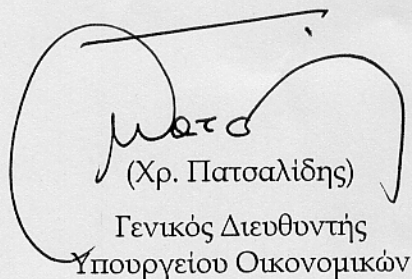 (Χρ. Πατσαλίδης)
Γενικός Διευθυντής
Υπουργείου Οικονομικών